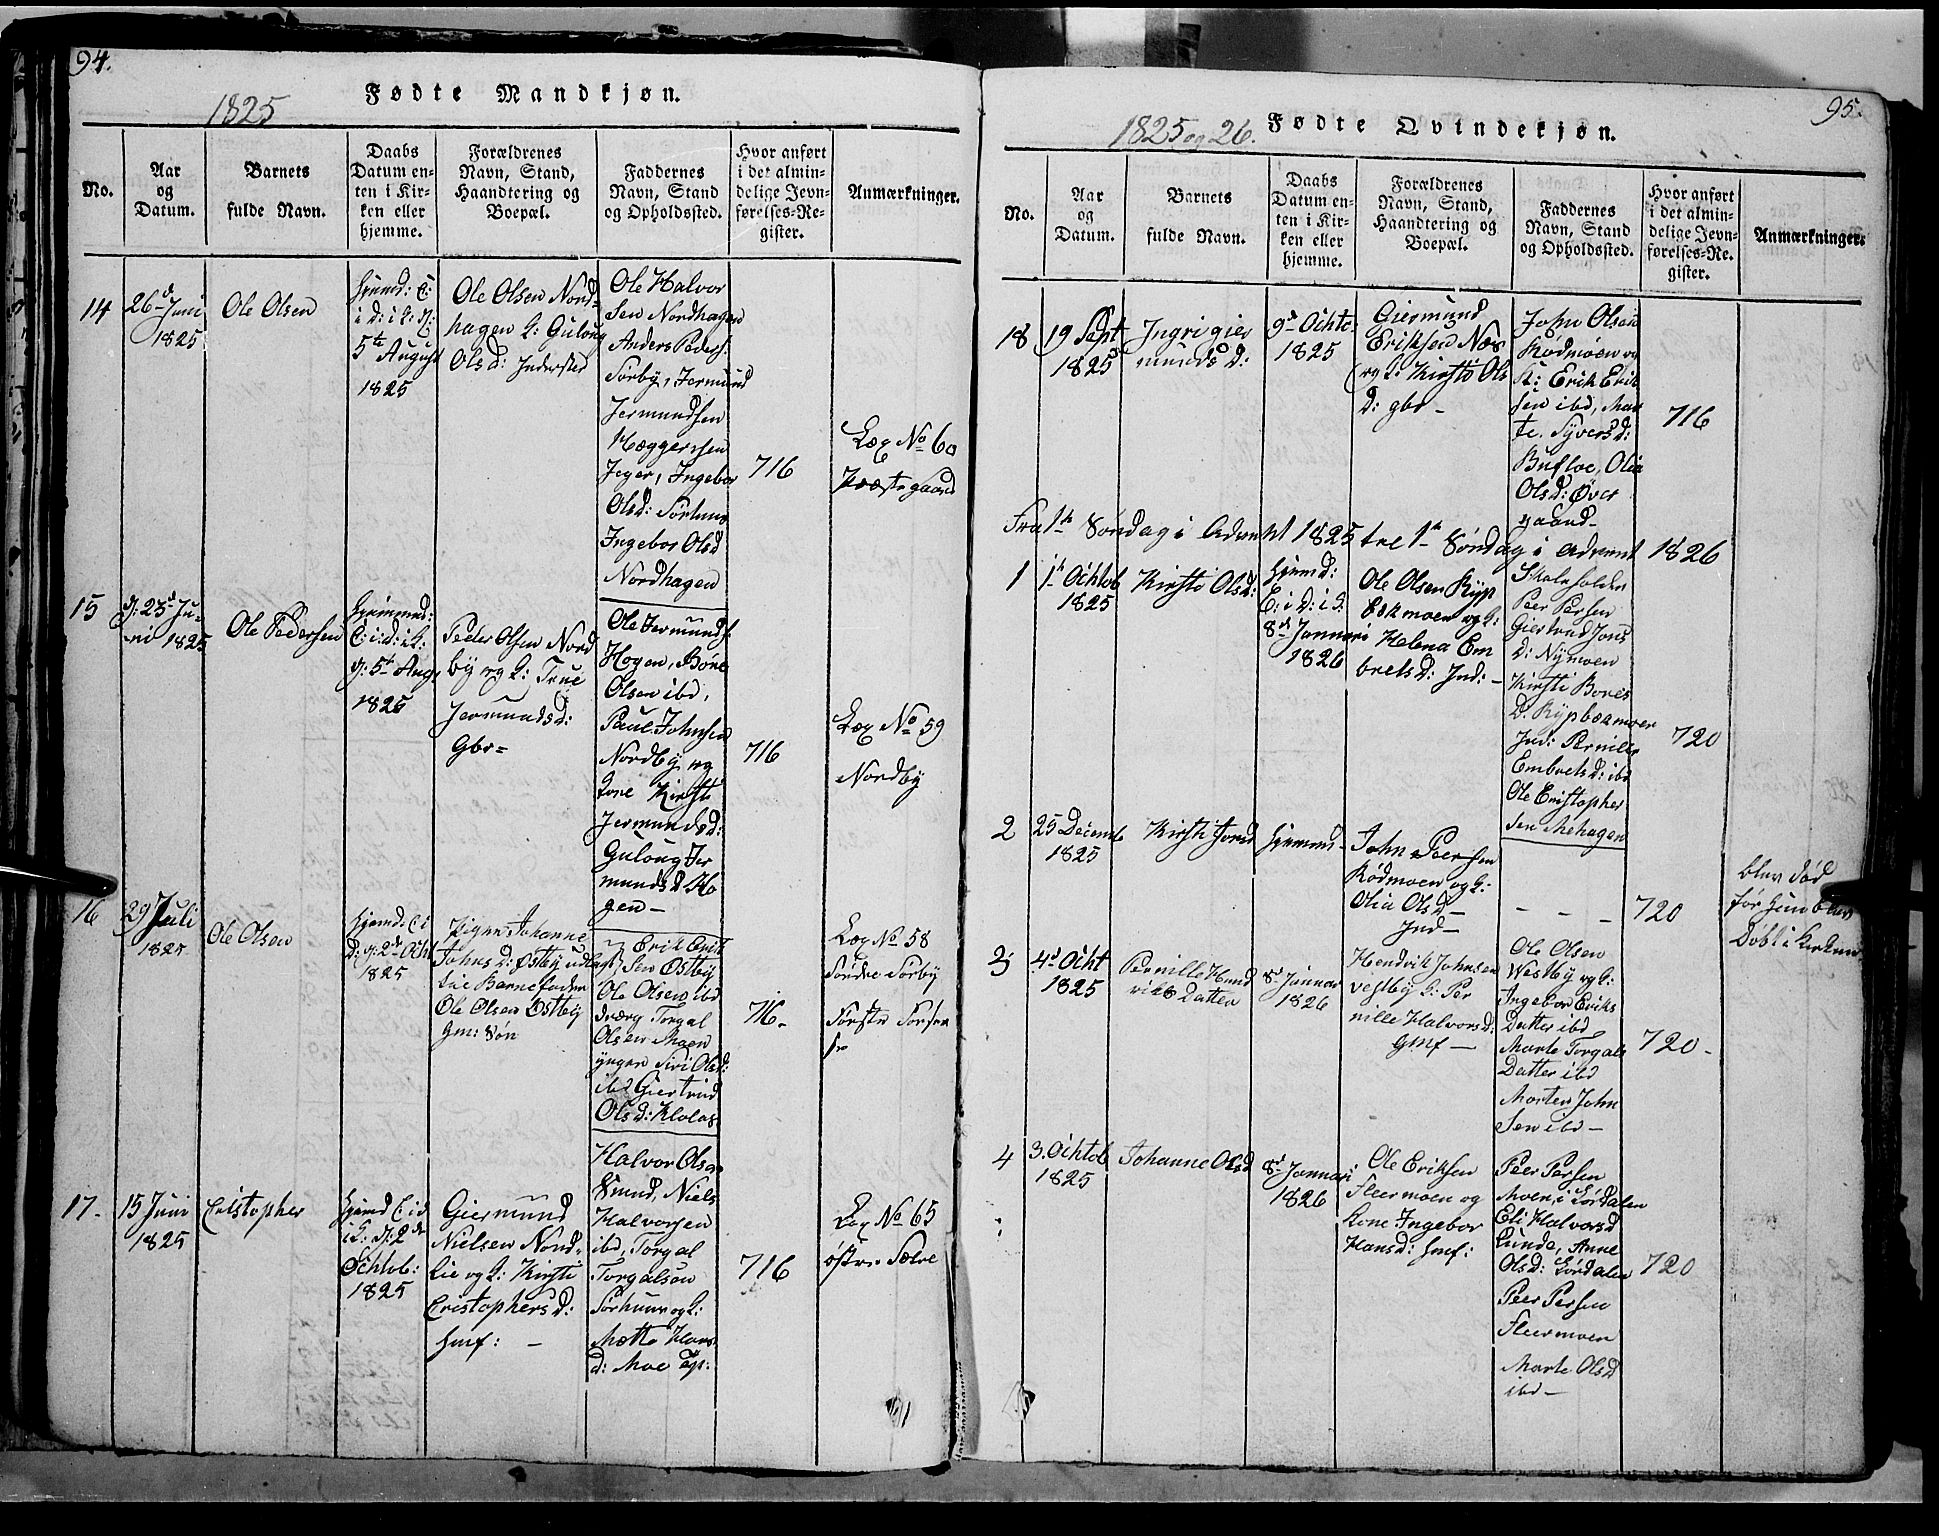 94.
Fødte Mandkjøn.
1825
No.
Aar
og
Datum.
Barnets
fulde Navn.
Daabs
Datum en-
ten i Kir-
ken eller
hjemme.
Forældrenes
Navn, Stand,
Haandtering og
Boepæl.
Faddernes
Navn, Stand
og Opholdssted.
Hvor anført
i det almin-
delige Jevn-
førelses-Re-
gister.
Anmærkninger.
14
26d Juni
1825
Ole Olsen
5te August
1825
Ole Olsen Nord-
hagen K: Guloug
Ols d: Inderster
Ole Halvor
sen Nordhagen
Anders Peders:
Sørby, Jermund
Jermundsen
Hæggerssen
Jeger, Ingebor
Olsd: Sørhuus
Ingebor Olsd
Nordhagen
716
Læg No 60
Præstegaard
15
g: 23d Ju-
ni 1825
Ole Pedersen
g: 5te Aug,
1825
Peder Olsen Nord
by og K: True
Jermundsd:
Gbr-
Ole Jermunds
Hogen, Børe
Olsen ibd,
Paul Johnsen
Nordby og
Kone Kirsti
Jermundsd:
Guloug Jer
mundsd Ho
gen-
716
Læg No 59
Nordby
16
29 Juli
1825
Ole Olsen
Hjemd: E i
D: g: 2de Ocht
1825
Pigen Johanne
Johns d: Østby udlagt
til Barnefader
Ole Olsen Østby
Gm: Søn
Erik Erik
sen Østby
Ole Olsen ibd
dræng Torgal
Olsen Moen
yngere Siri Olsd:
ibd Giertrud
Olsd: Kloløs
716-
Læg No 58
Søndre Sørby
17-
15 Juni
1825
Cristopher
Hjemd E i d
i K: g: 2de
Ochtob:
1825
Giermund
Nielsen Nord-
lie og K: Kirsti
Cristophers d:
Hmf: -
Halvor Olsen
Smed, Niels
Halvorsen
ibd, Torgal
Torgalsen
Sørhuus og K:
Mætte Hans
d: Moe Ep:
716
Læg No 65
østre Sælve
95.
1825 og 26.
Fødte Qvindekjøn.
No.
Aar
og
Datum.
Barnets
fulde Navn.
Daabs
Datum en-
ten i Kir-
ken eller
hjemme.
Forældrenes
Navn, Stand,
Haandtering og
Boepæl.
Faddernes
Navn, Stand
og Opholdssted.
Hvor anført
i det almin-
delige Jevn-
førelses-Re-
gister.
Anmærkninger.
18
19 Sept
1825
Ingri gier
munds d:
9d Ochto
1825
Giermund
Eriksen Næs
og K: Kirsti Ols
d: gbr-
John Olsen
Rødmoen og
K: Erik Erik
sen ibd, Mar
te Syversd:
Bufloe, Olia
Olsd: Øver
gaard-
716
Fra 1te Søndag i Advent 1825 til 1te Søndag i Advent 1826
1
1te Ochtob
1825
Kirsti Olsd:
Hjemd:
E: i D: i K:
8d Januari
1826
Ole Olsen Ryp
Ekmoen og K:
Helena Em
bretsd: Ind: -
Skoleholder
Peer Persen
Giertrud Jons
D: Nymoen
Kirsti Bores
D. Rypbekmoen
Ind: Pernille
Embretsd: ibd
Ole Cristopher
sen Mehagen
720
2
25 Decemb
1825
Kirsti Jonsd
Hjemme-
John Peersen
Rødmoen og K:
Olia Olsd-
Ind-
- - -
720
blev død
før hun blev
Døbt i Kirken
3
4d Ocht
1825
Pernille Hend
riks Datter
8d Januar
1826
Hendrik Johnsen
vestby K: Per
nille Halvorsd:
Gmf-
Ole Olsen
Westby og K:
Ingebor Eriks
Datter ibd
Marte Torgals
Datter ibd
Morten John
sen ibd-
720-
4
3. Ochtob
1825
Johanne Olsd
8d Januari
1826
Ole Eriksen
Fleermoen og
Kone Ingebor
Hansd: Hmf:
Peer Persen
Moen i Lørdalen
Eli Halvorsd
Lunde, Anne
Olsd: Lørdalen
Peer Persen
Fleermoen
Marte Olsd
ibd-
720